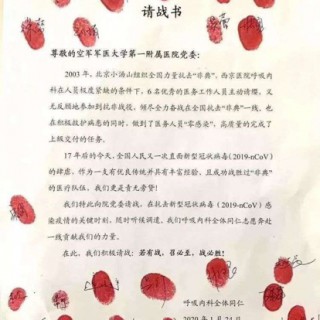 请战书
尊敬的空军军医大学第一附属医院党委：
2003年，北京小汤山组织全国力量抗击“非典”，西京医院呼吸内
科在人员极度紧张的条件下，6名优秀的医务工作人员主动请缨，义
无反顾地参加到抗非战役，倾尽全力奋战在全国抗击“非典”一线，也
在积极救护病患的同时，做到了医务人员“零感染”，高质量的完成了
上级交付的任务。
17年后的今天，全国人民又一次直面新型冠状病毒(2019-nCoV)
的肆虐，作为一支有优良传统并具有丰富经验，且成功战胜过“非典”
的医疗队伍，我们更是责无旁贷！
我们特此向院党委请战，在抗击新型冠状病毒(2019-nCoV)感
染疫情的关键时刻，随时听候调遣，我们呼吸内科全体同仁志愿奔赴
一线贡献我们的力量。
在此，我们积极请战：若有战，召必至，战必胜！
呼吸内科全体同仁
2020年1月24日